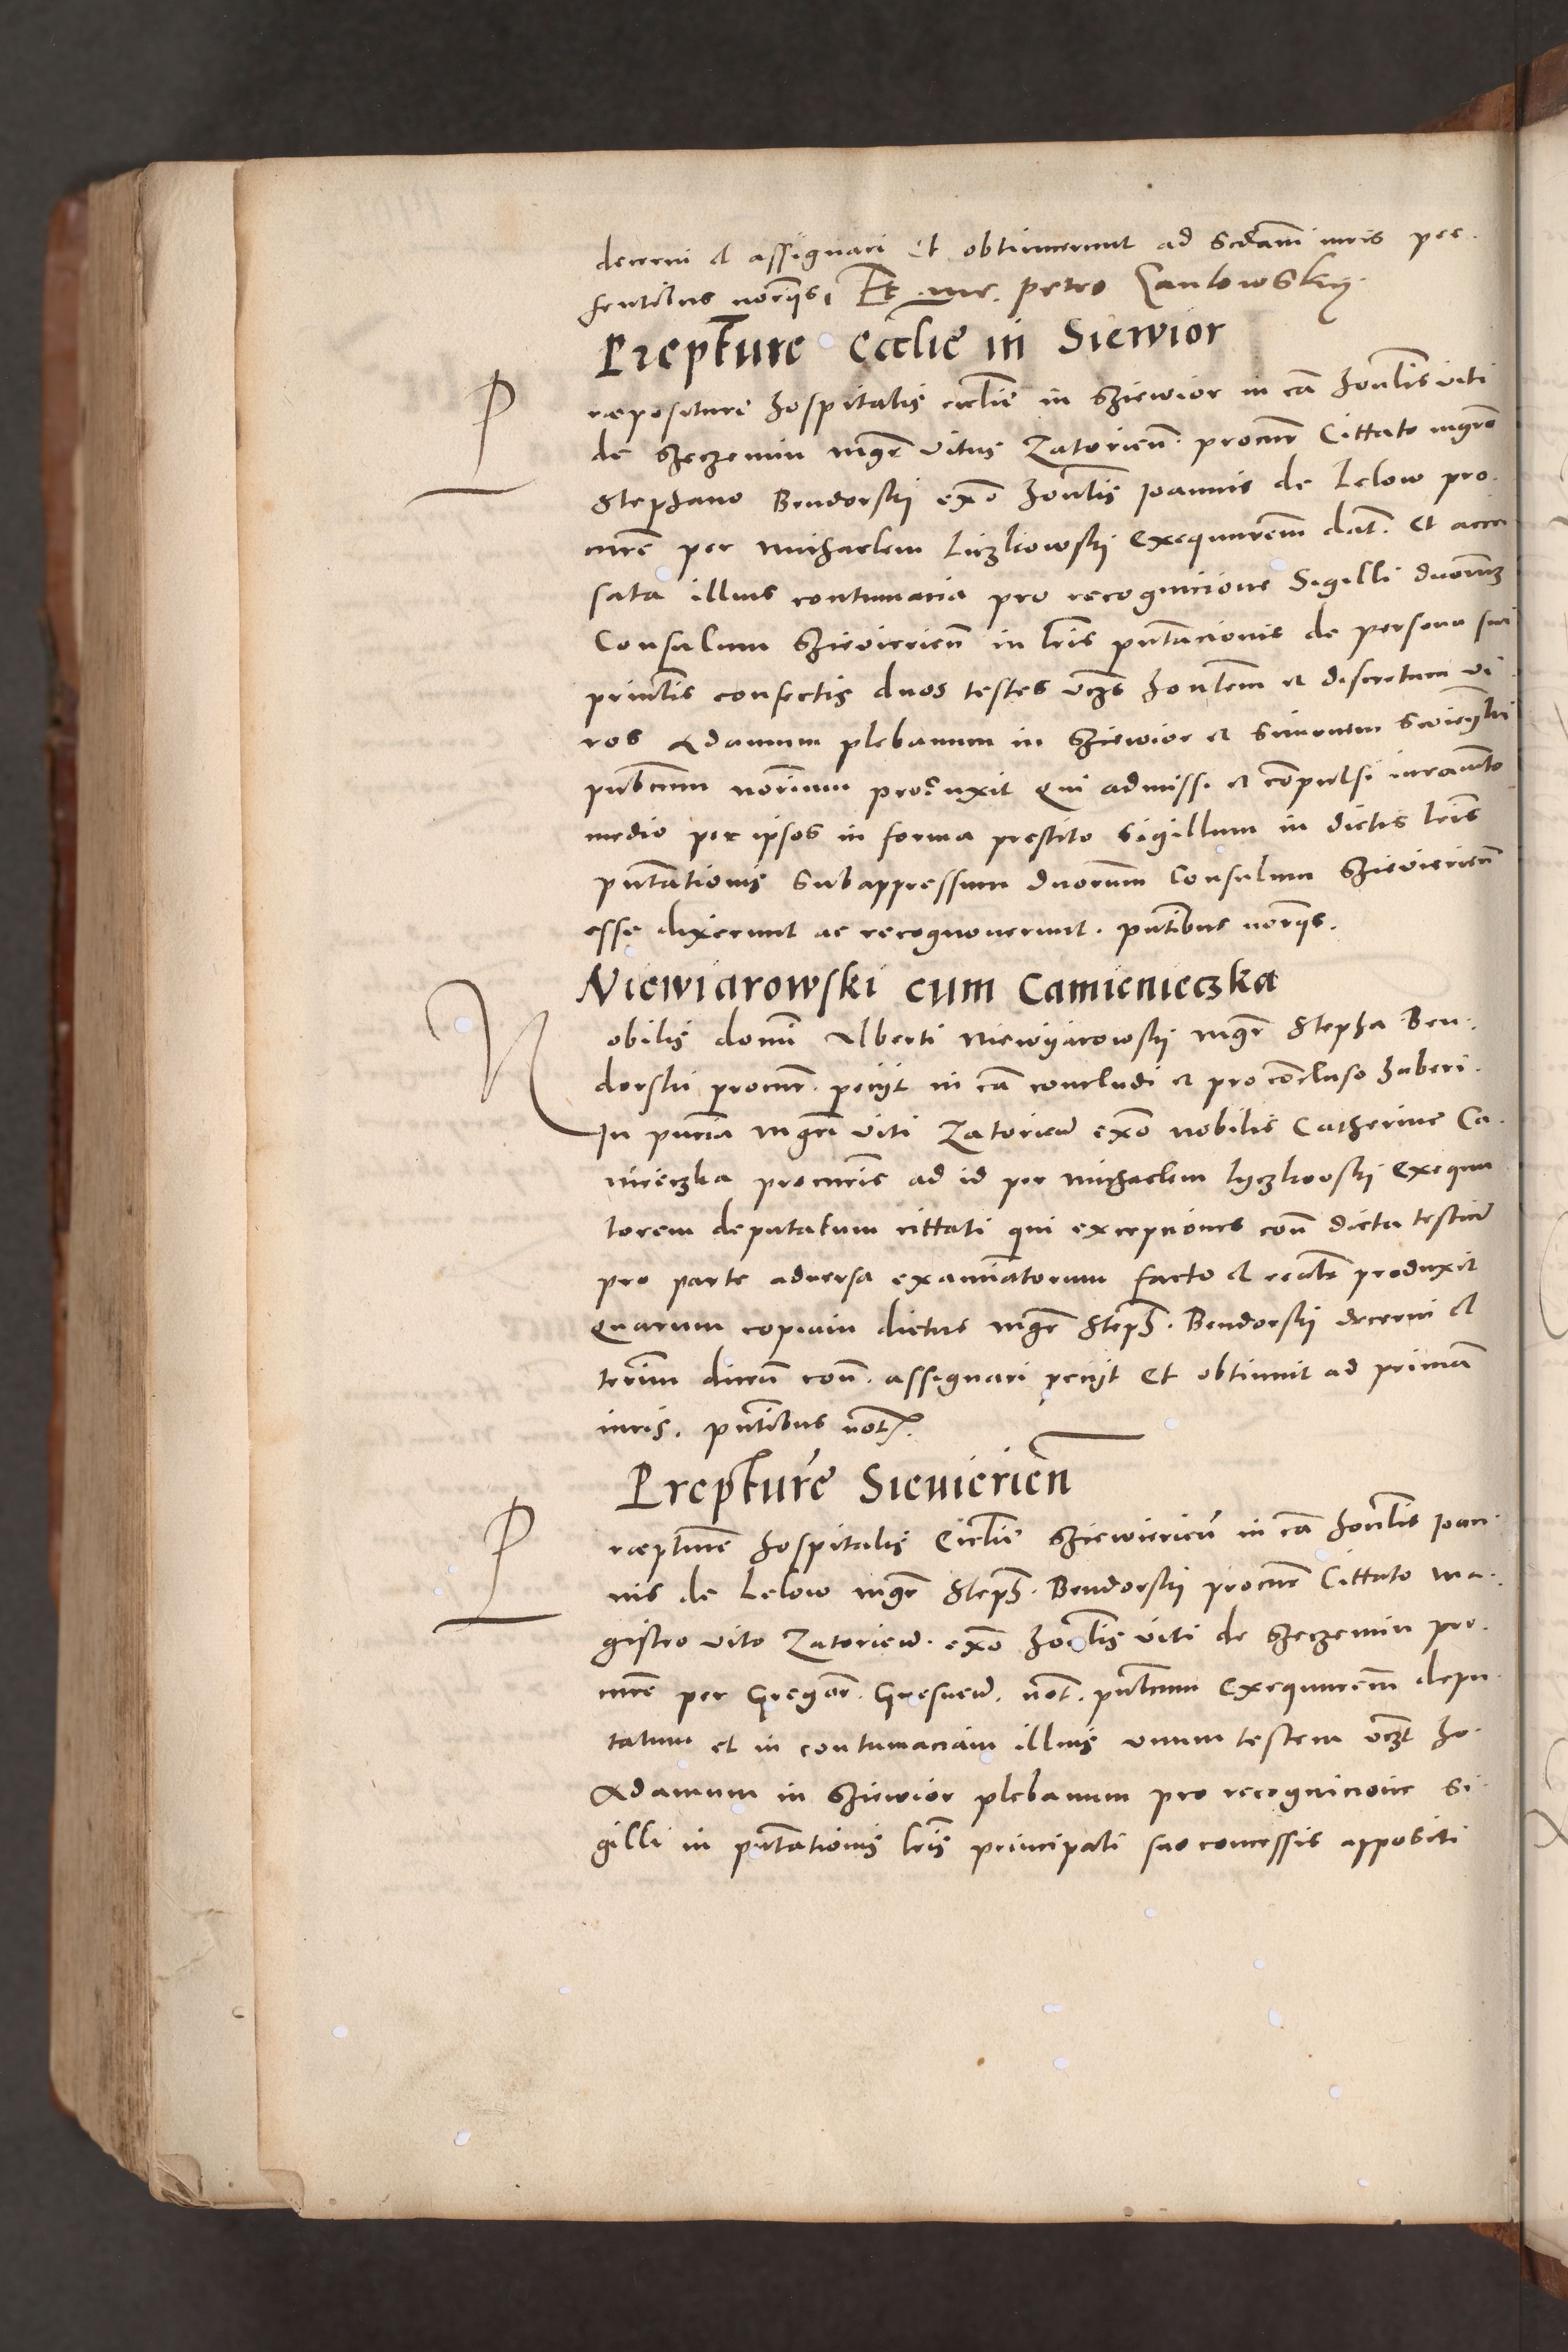 decerni et assignari Et obtinuerunt ad Scdam iuris pre-
sentibus norijs, Et me petro
Prepture Ecclie in Siewior
Praepositure hospitalis ecclie in Sziewior in ca honlis viti
de Szeczemin mgr vitus Zatorien. procur Cittato mgro
Stephano Bendorskij exo honlis Joannis de Lelow pro-
cure per michaelem Liczkowskij Exequurem dat. Et accu
sata illius contumacia pro recognicione Sigilli duorum
Consulum Szievierien in lris pntacionis de persona sui
princlis confectis duos testes vczs honlem et discretum vi-
ros Adamum plebanum in Sziewior et Simonem
pubcum norium produxit Qui admissi et compulsi iuramto
medio per ipsos in forma prestito Sigillum in dictis lris
pntationis Subappressum duorum Consulum Szievierien
esse dixerunt ac recognoverunt. pntibus norijs.
Niewiarowski cum Camienieczka
Nobilis domi Alberti Niewyarowskij mgr Stepha Ben-
dorski procur. pecijt in ca concludi et pro concluso haberi.
In pncia mgri viti Zatorien exo nobilis Catherine Ca-
mieczka procuris ad id per michaelem lyczkowskij Exequu
torem deputatum cittati qui excepciones con dicta testium
pro parte adversa examinatorum facto et produxit
Quarum copiam dictus mgr Steph. Bendorskij decerni et
terium dicen con. assignari pecijt Et obtinuit ad primam
iuris. pntibus not.
Prepture Sievierien
Praepture hospitalis Ecclie Sziewierien in ca honlis Joan-
nis de Lelow mgr Steph. Bendorskij procur Cittato ma-
gistro vito Zatorien. exo honlis viti de Szeczemin pro-
cure per Gregor. not. pubcum Exequurem depu-
tatum et in contumaciam illius unum testem vczt ho.
Adamum in Sziewior plebanum pro recognicione Si-
gilli in pntationis lris principali suo concessis appositi